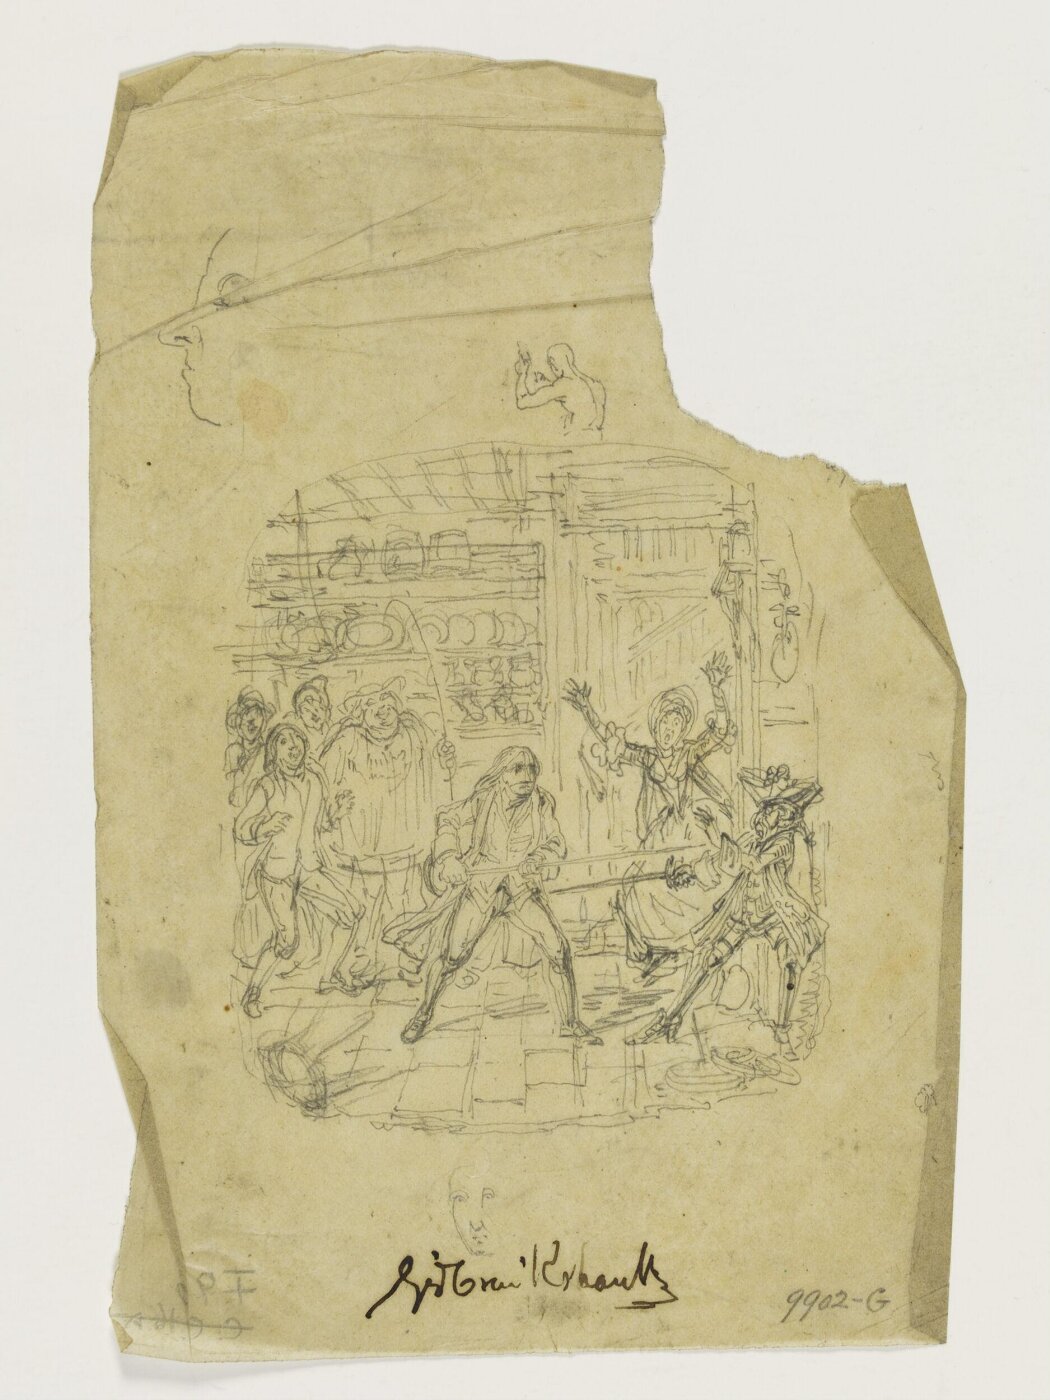 Geo Cruikshank
9902-G